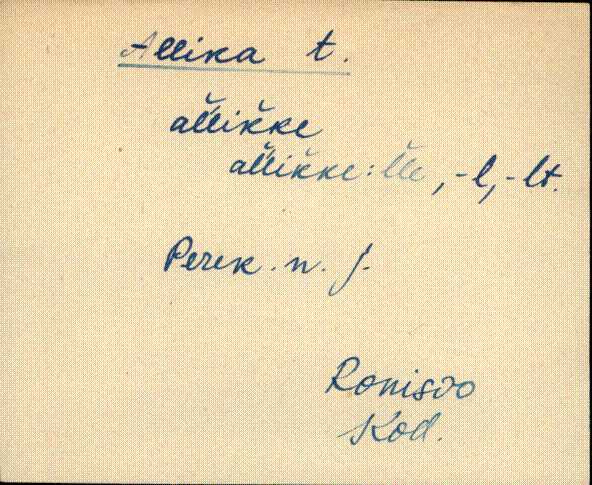 Allika t.
al̆l̆ik̆ke
al̆l̆ik̆ke: l̆le, -l, -lt.
Perek. n. j.
Ronisoo
Kod.